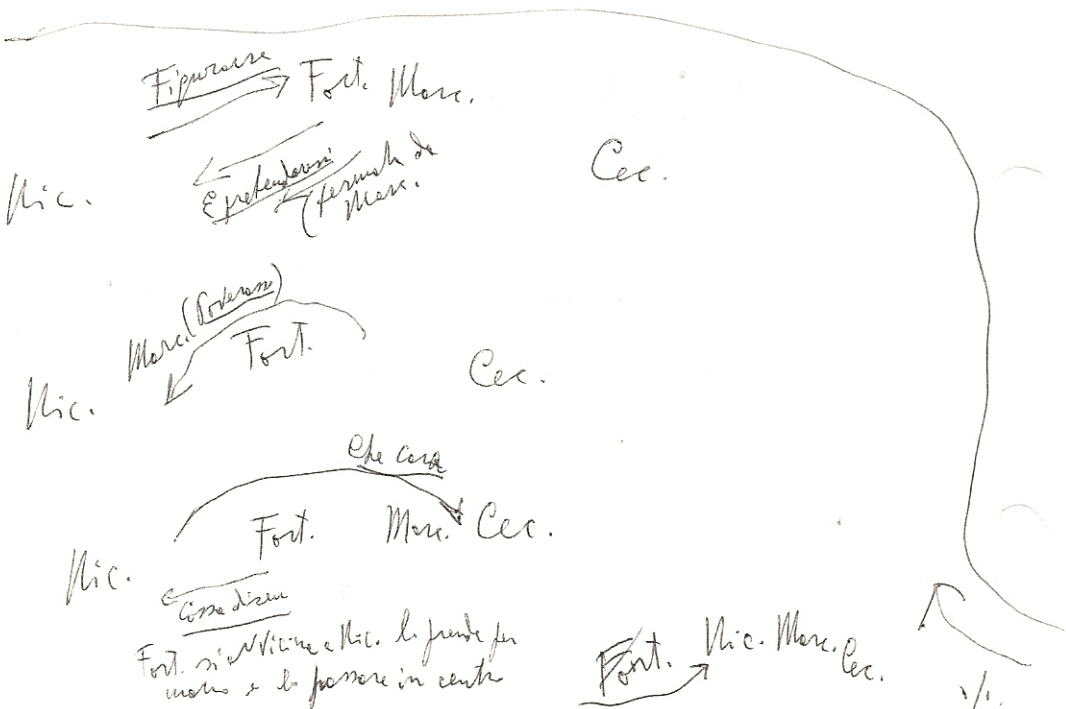 Figurarse
Fort. Marc.
Nic.
E pretendaressi
(fermata da
Marc.
Cec.
Marc. (Poderoso)
Fort.
Nic.
Cec.
Che cara
Fort. Marc. Cec.
Nic.
Cossa diseu
Fort. si avvicina a Nic. lo prende per
mano e lo passare in centro
Fort. Nic. Marc. Cec.
./.